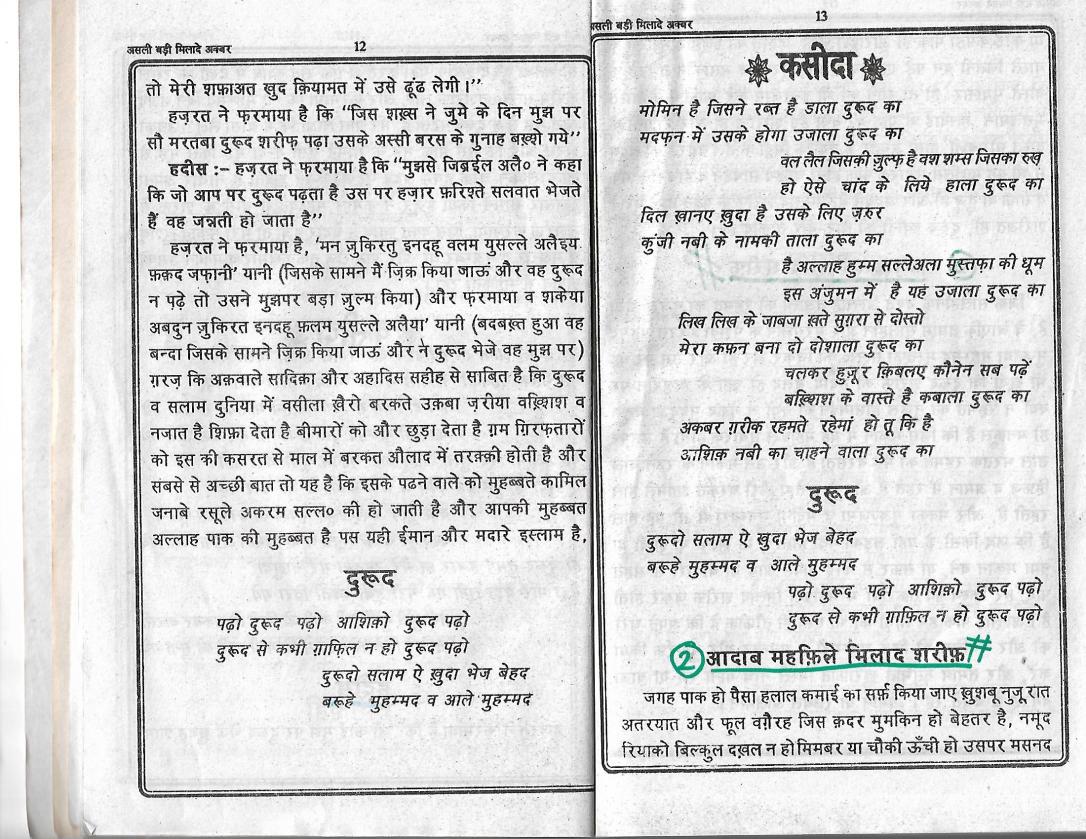 असली बड़ी मिलादे अक्बर
12
तो मेरी शफ़ाअत खुद क़ियामत में उसे ढूंढ लेगी।”
हज़रत ने फ़रमाया है कि “जिस शख़्स ने जुमे के दिन मुझ पर
सौ मरतबा दुरूद शरीफ़ पढ़ा उसके अस्सी बरस के गुनाह बख़्शे गये”
हदीस :– हज़रत ने फ़रमाया है कि “मुझसे जिब्रईल अलै० ने कहा
कि जो आप पर दुरूद पढ़ता है उस पर हज़ार फ़रिश्ते सलवात भेजते
हैं वह जन्नती हो जाता है”
हज़रत ने फ़रमाया है, ‘मन ज़ुकिरतु इनदहू वलम युसल्ले अलैइय
फ़क़द जफ़ानी’ यानी (जिसके सामने मैं ज़िक्र किया जाऊं और वह दुरूद
न पढ़े तो उसने मुझपर बड़ा ज़ुल्म किया) और फ़रमाया व शकेया
अबदुन ज़ुकिरत इनदहू फ़लम युसल्ले अलैया’ यानी (बदबख़्त हुआ वह
बन्दा जिसके सामने ज़िक्र किया जाऊं और न दुरूद भेजे वह मुझ पर)
ग़रज़ कि अक़वाले सादिक़ा और अहादिस सहीह से साबित है कि दुरूद
व सलाम दुनिया में वसीला ख़ैरो बरकते उक़बा ज़रीया बख़्शिश व
नजात है शिफ़ा देता है बीमारों को और छुड़ा देता है ग़म गिरफ़तारों
को इस की कसरत से माल में बरकत औलाद में तरक़्क़ी होती है और
संबसे से अच्छी बात तो यह है कि इसके पढने वाले को मुहब्बते कामिल
जनाबे रसूले अकरम सल्ल० की हो जाती है और आपकी मुहब्बत
अल्लाह पाक की मुहब्बत है पस यही ईमान और मदारे इस्लाम है,
दुरूद
पढ़ो दुरूद पढ़ो आशिक़ो दुरूद पढ़ो
दुरूद से कभी ग़ाफ़िल न हो दुरूद पढ़ो
दुरूदो सलाम ऐ ख़ुदा भेज बेहद
बरूहे मुहम्मद व आले मुहम्मद
असली बड़ी मिलादे अक्बर
13
कसीदा
मोमिन है जिसने रब्त है डाला दुरूद का
मदफ़न में उसके होगा उजाला दुरूद का
वल लैल जिसकी ज़ुल्फ़ है वश शम्स जिसका रुख़
हो ऐसे चांद के लिये हाला दुरूद का
दिल ख़ानए ख़ुदा है उसके लिए ज़रुर
कुंजी नबी के नामकी ताला दुरूद का
है अल्लाह हुम्म सल्लेअला मुस्तफ़ा की धूम
इस अंजुमन में है यह उजाला दुरूद का
लिख लिख के जाबजा ख़ते सुग़रा से दोस्तो
मेरा कफ़न बना दो दोशाला दुरूद का
चलकर हुज़ूर क़िबलए कौनेन सब पढ़ें
बख़्शिश के वास्ते है कबाला दुरूद का
अकबर ग़रीक रहमते रहेमां हो तू कि है
आशिक़ नबी का चाहने वाला दुरूद का
दुरूद
दुरूदो सलाम ऐ ख़ुदा भेज बेहद
बरूहे मुहम्मद व आले मुहम्मद
पढ़ो दुरूद पढ़ो आशिक़ो दुरूद पढ़ो
दुरूद से कभी ग़ाफ़िल न हो दुरूद पढ़ो
2 आदाब महफ़िले मिलाद शरीफ़ #
जगह पाक हो पैसा हलाल कमाई का सर्फ़ किया जाए ख़ुशबू नुजूरात
अतरयात और फूल वग़ैरह जिस क़दर मुमकिन हो बेहतर है, नमूद
रियाको बिल्कुल दख़ल न हो मिमबर या चौकी ऊँची हो उसपर मसनद